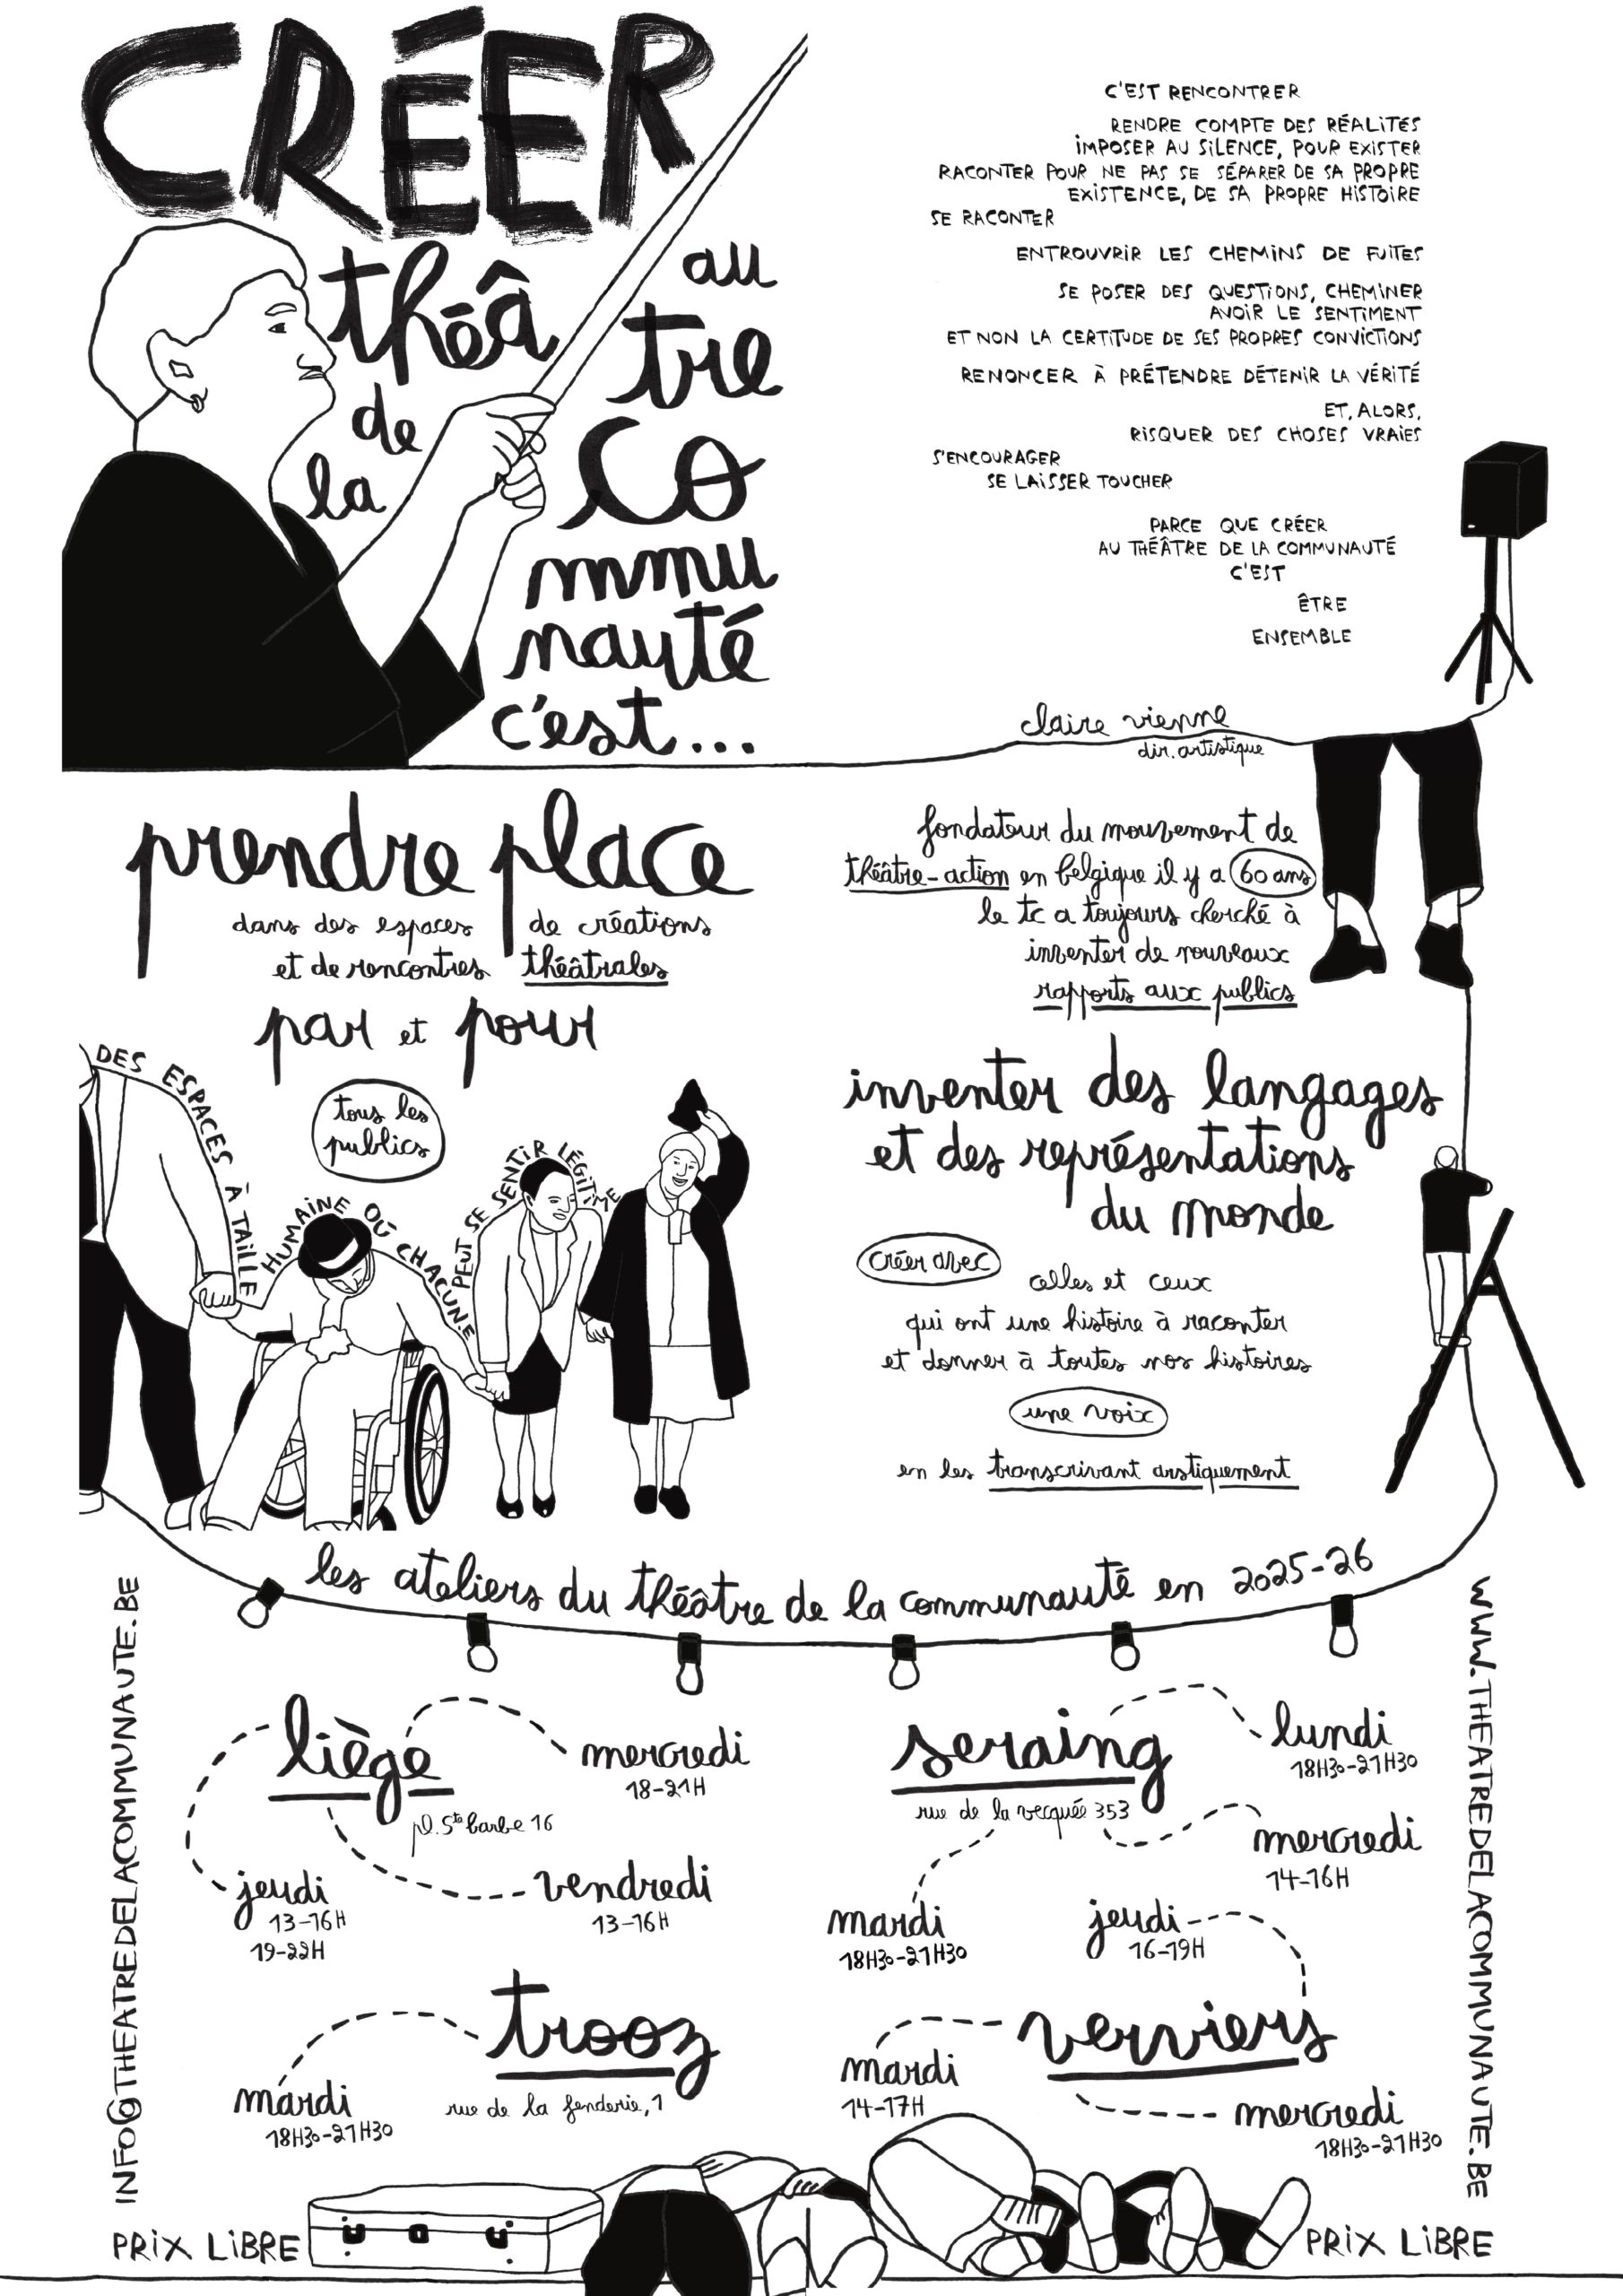 CRÉER
au
théâ
tre
de
la
co
mmu
nauté
c'est...
C'EST RENCONTRER
RENDRE COMPTE DES RÉALITÉS
IMPOSER AU SILENCE, POUR EXISTER
RACONTER POUR NE PAS SE SÉPARER DE SA PROPRE
EXISTENCE, DE SA PROPRE HISTOIRE
SE RACONTER
ENTROUVRIR LES CHEMINS DE FUITES
SE POSER DES QUESTIONS, CHEMINER
AVOIR LE SENTIMENT
ET NON LA CERTITUDE DE SES PROPRES CONVICTIONS
RENONCER À PRÉTENDRE DÉTENIR LA VÉRITÉ
ET, ALORS,
RISQUER DES CHOSES VRAIES
S'ENCOURAGER
SE LAISSER TOUCHER
PARCE QUE CRÉER
AU THÉÂTRE DE LA COMMUNAUTÉ
C'EST
ÊTRE
ENSEMBLE
claire vienne
dir. artistique
prendre place
dans des espaces de créations
et de rencontres théâtrales
par et pour
tous les
publics
DES ESPACES À TAILLE HUMAINE OÙ CHACUN.E PEUT SE SENTIR LÉGITIME
fondateur du mouvement de
théâtre-action en belgique il y a 60 ans
le tc a toujours cherché à
inventer de nouveaux
rapports aux publics
inventer des langages
et des représentations
du monde
créer avec
celles et ceux
qui ont une histoire à raconter
et donner à toutes nos histoires
une voix
en les transcrivant arstiquement
les ateliers du théâtre de la communauté en 2025-26
INFO@THEATREDELACOMMUNAUTE.BE
WWW.THEATREDELACOMMUNAUTE.BE
liège
pl. Ste barbe 16
mercredi
18-21H
jeudi
13-16H
19-22H
vendredi
13-16H
seraing
rue de la vecquée 353
lundi
18H30-21H30
mercredi
14-16H
mardi
18H30-21H30
trooz
rue de la fenderie, 1
mardi
18H30-21H30
verviers
jeudi
16-19H
mardi
14-17H
mercredi
18H30-21H30
PRIX LIBRE
PRIX LIBRE